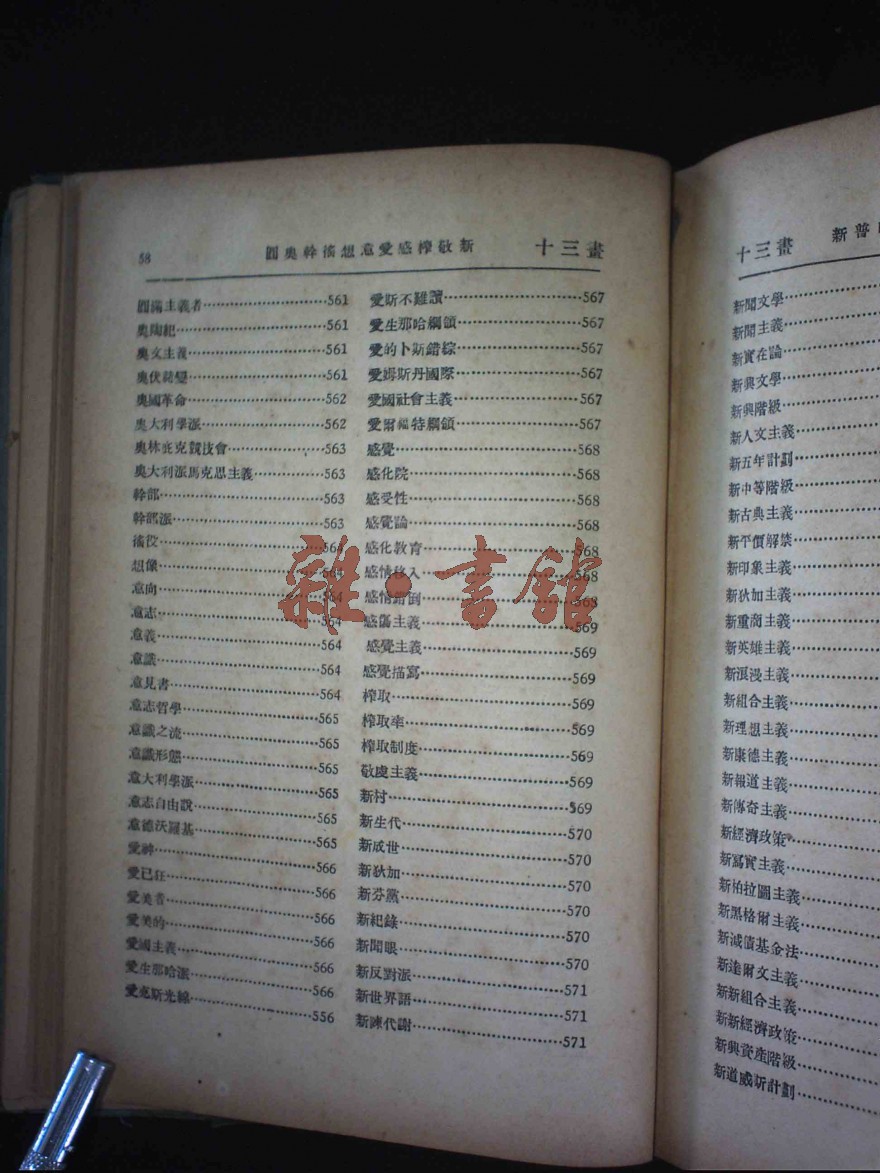 58
圓奧幹徭想意愛感榨敬新
十三畫
圓滿主義者 561
奧陶紀 561
奧文主義 561
奧伏赫變 561
奧國革命 562
奧大利學派 562
奧林疵克競技會 563
奧大利派馬克思主義 563
幹部 563
幹部派 563
徭役 564
想像
意向
意志 564
意義 564
意識 564
意見書 564
意志哲學 565
意識之流 565
意識形態 565
意大利學派 565
意志自由說 565
意德沃羅基 565
愛神 566
愛己狂 566
愛美者 566
愛美的 566
愛國主義 566
愛生那哈派 566
愛克斯光線 556
愛斯不難讀 567
愛生那哈綱領 567
愛的卜斯錯綜 567
愛姆斯丹國際 567
愛國社會主義 567
愛爾福特綱領 567
感覺 568
感化院 568
感受性 568
感覺論 568
感化教育 568
感情移入 568
感情錯倒 568
感傷主義 569
感覺主義 569
感覺描寫 569
榨取 569
榨取率 569
榨取制度 569
敬虔主義 569
新村 569
新生代 570
新成世 570
新狄加 570
新芬黨 570
新紀錄 570
新聞眼 570
新反對派 571
新世界語 571
新陳代謝 571
雜·書館
十三畫
新普
新聞文學
新聞主義
新實在論
新興文學
新興階級
新人文主義
新五年計劃
新中等階級
新古典主義
新平價解禁
新印象主義
新狄加主義
新重商主義
新英雄主義
新浪漫主義
新組合主義
新理想主義
新康德主義
新報道主義
新傳奇主義
新經濟政策
新寫實主義
新柏拉圖主義
新黑格爾主義
新減債基金法
新達爾文主義
新新組合主義
新新經濟政策
新興資產階級
新道威斯計劃